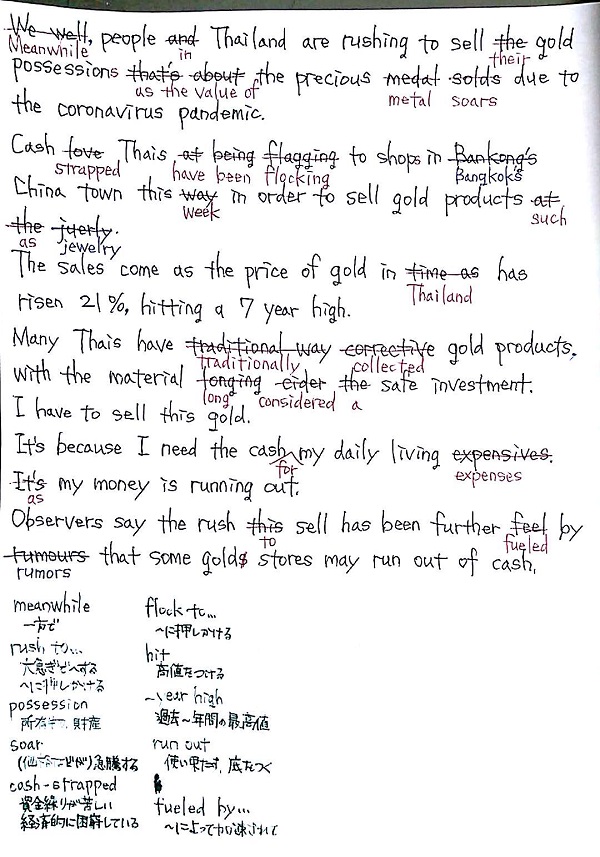 We well, people and Thailand are rushing to sell the gold
Meanwhile in their
possessions that's about the precious medal solds due to
as the value of metal soars
the coronavirus pandemic.
Cash love Thais at being flagging to shops in Bankong's
strapped have been flocking Bangkok's
China town this way in order to sell gold products at
week such
the juerly.
as jewelry
The sales come as the price of gold in time as has
Thailand
risen 21%, hitting a 7 year high.
Many Thais have traditional way corrective gold products,
traditionally collected
with the material longing cider the safe investment.
long considered a
I have to sell this gold.
It's because I need the cash my daily living expensives.
for expenses
It's my money is running out.
as
Observers say the rush this sell has been further feel by
to fueled
tumours that some golds stores may run out of cash.
rumors
meanwhile flock to...
一方で ～に押しかける
rush to... hit
大急ぎで～する 高値をつける
～に押しかける
possession ～year high
財産 過去～年間の最高値
soar run out
急騰する 使い果たす, 底をつく
cash-strapped
資金繰りが苦しい fueled by...
経済的に困窮している ～によって加速されて